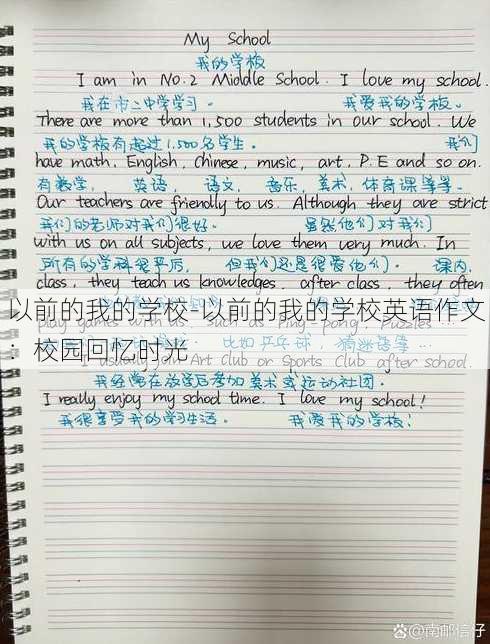 My School
我的学校
I am in No.2 Middle School. I love my school.
我在市二中学学习。 我爱我的学校。
There are more than 1,500 students in our school. We
我的学校有超过1,500名学生。 我们
have math, English, Chinese, music, art, P.E and so on.
有数学, 英语, 语文, 音乐, 美术, 体育课等等。
Our teachers are friendly to us. Although they are strict
我们的老师对我们很好。 虽然他们对我们
with us on all subjects, we love them very much. In
所有的学科很严厉, 但我们还是很爱他们。 课内,
class, they teach us knowledges, after class, they often
以前的我的学校-以前的我的学校英语作文
play games with us. Such as Ping-pong, Puzzles
：校园回忆时光
比如乒乓球, 猜谜语等…
I usually join Art Club or Sports Club after school.
我经常在放学后参加美术或运动社团。
I really enjoy my school time. I love my school!
我很享受我的学习生活。 我爱我的学校!
@南邮信仔